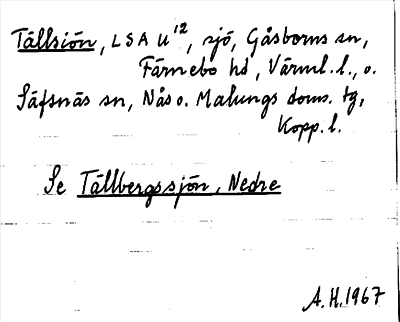 Tällsjön, LSA U¹², sjö, Gåsborns sn,
Färnebo hd, Värml. l., o.
Säfsnäs sn, Nås o. Malungs doms. tg,
Kopp. l.
Se Tällbergssjön, Nedre
A.H. 1967